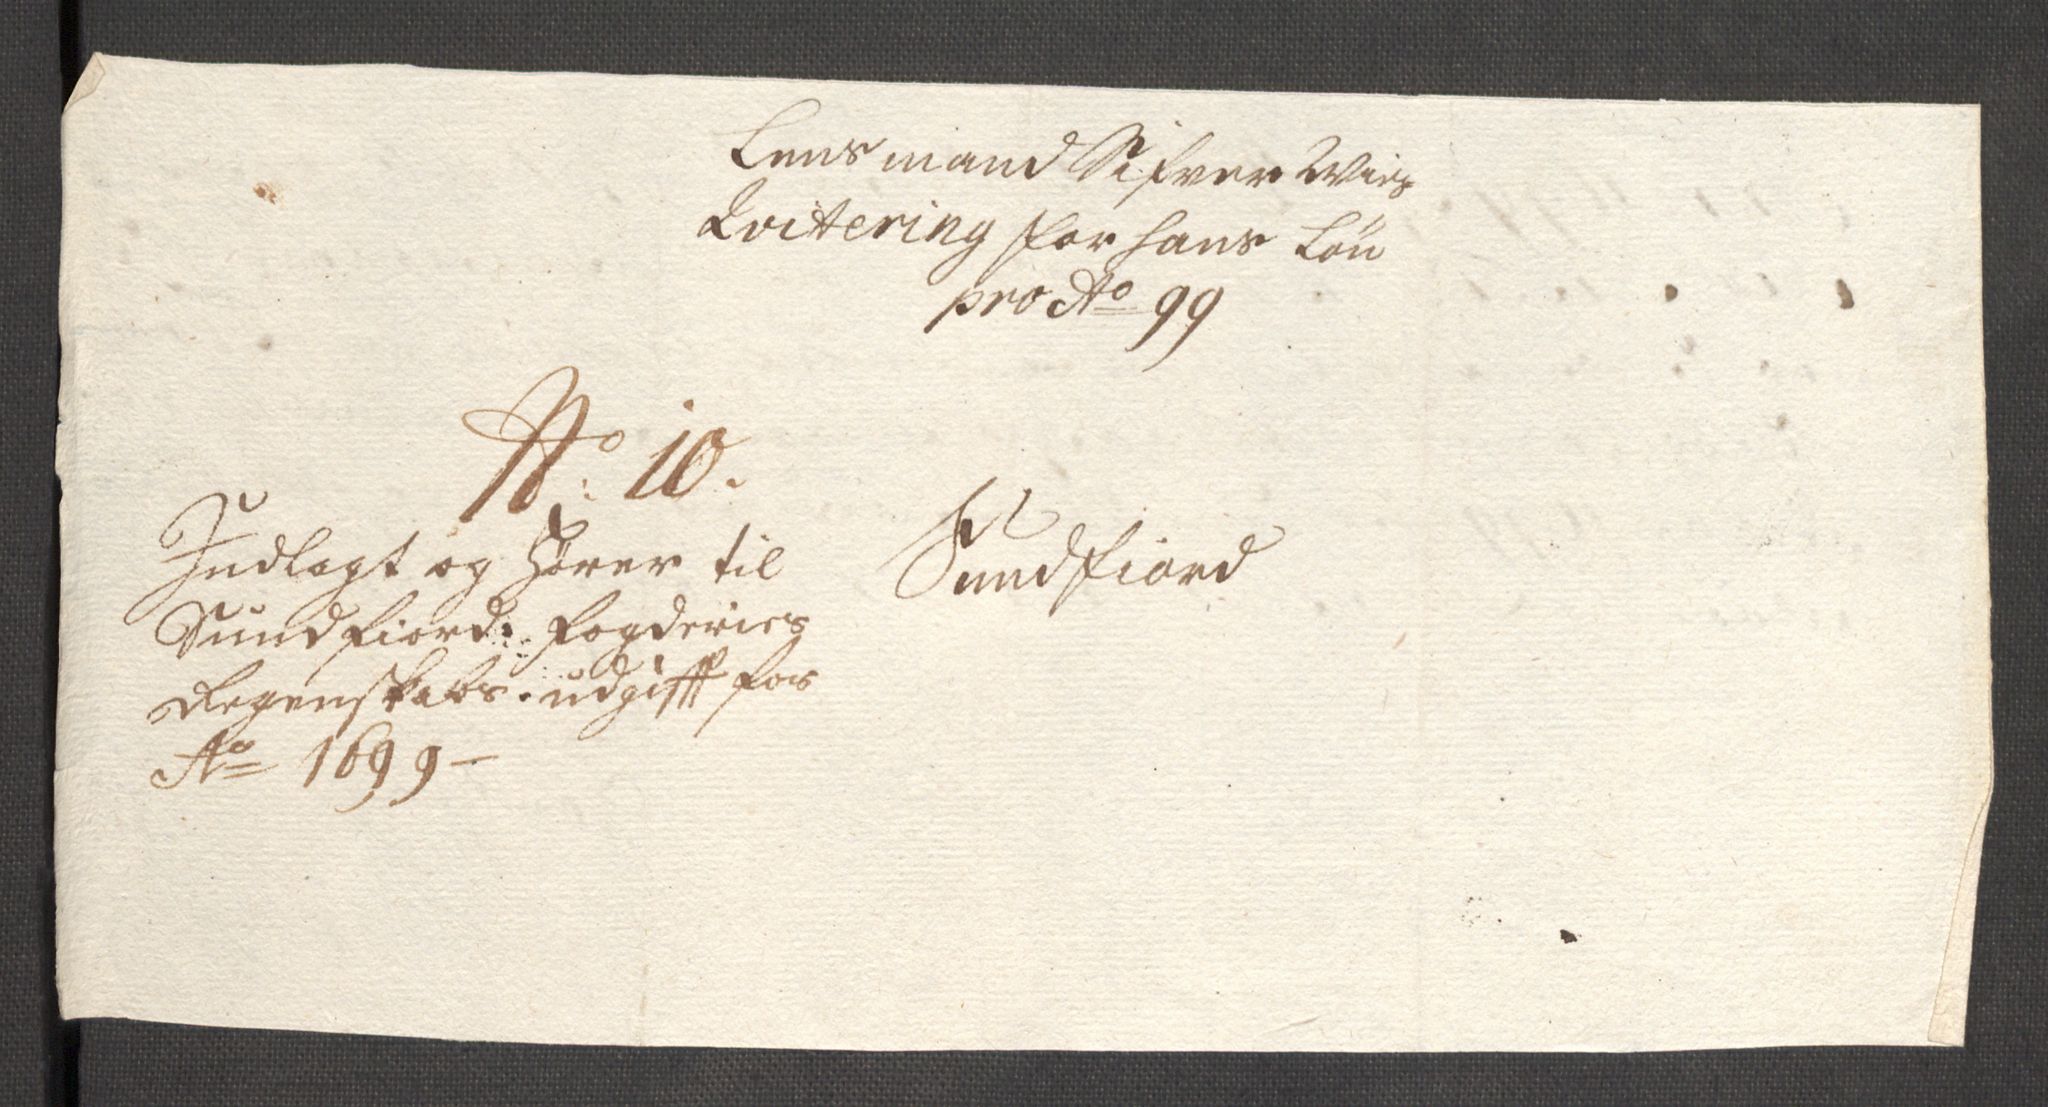 Lensmand Sifver Wies
Qvitering for hans Løn
pro Ao 99
No. 10.
Indlagt og Hører til
Sundfiord: fogderies
Regenskabs udgifft for
Ao 1699 -
Sundfiord